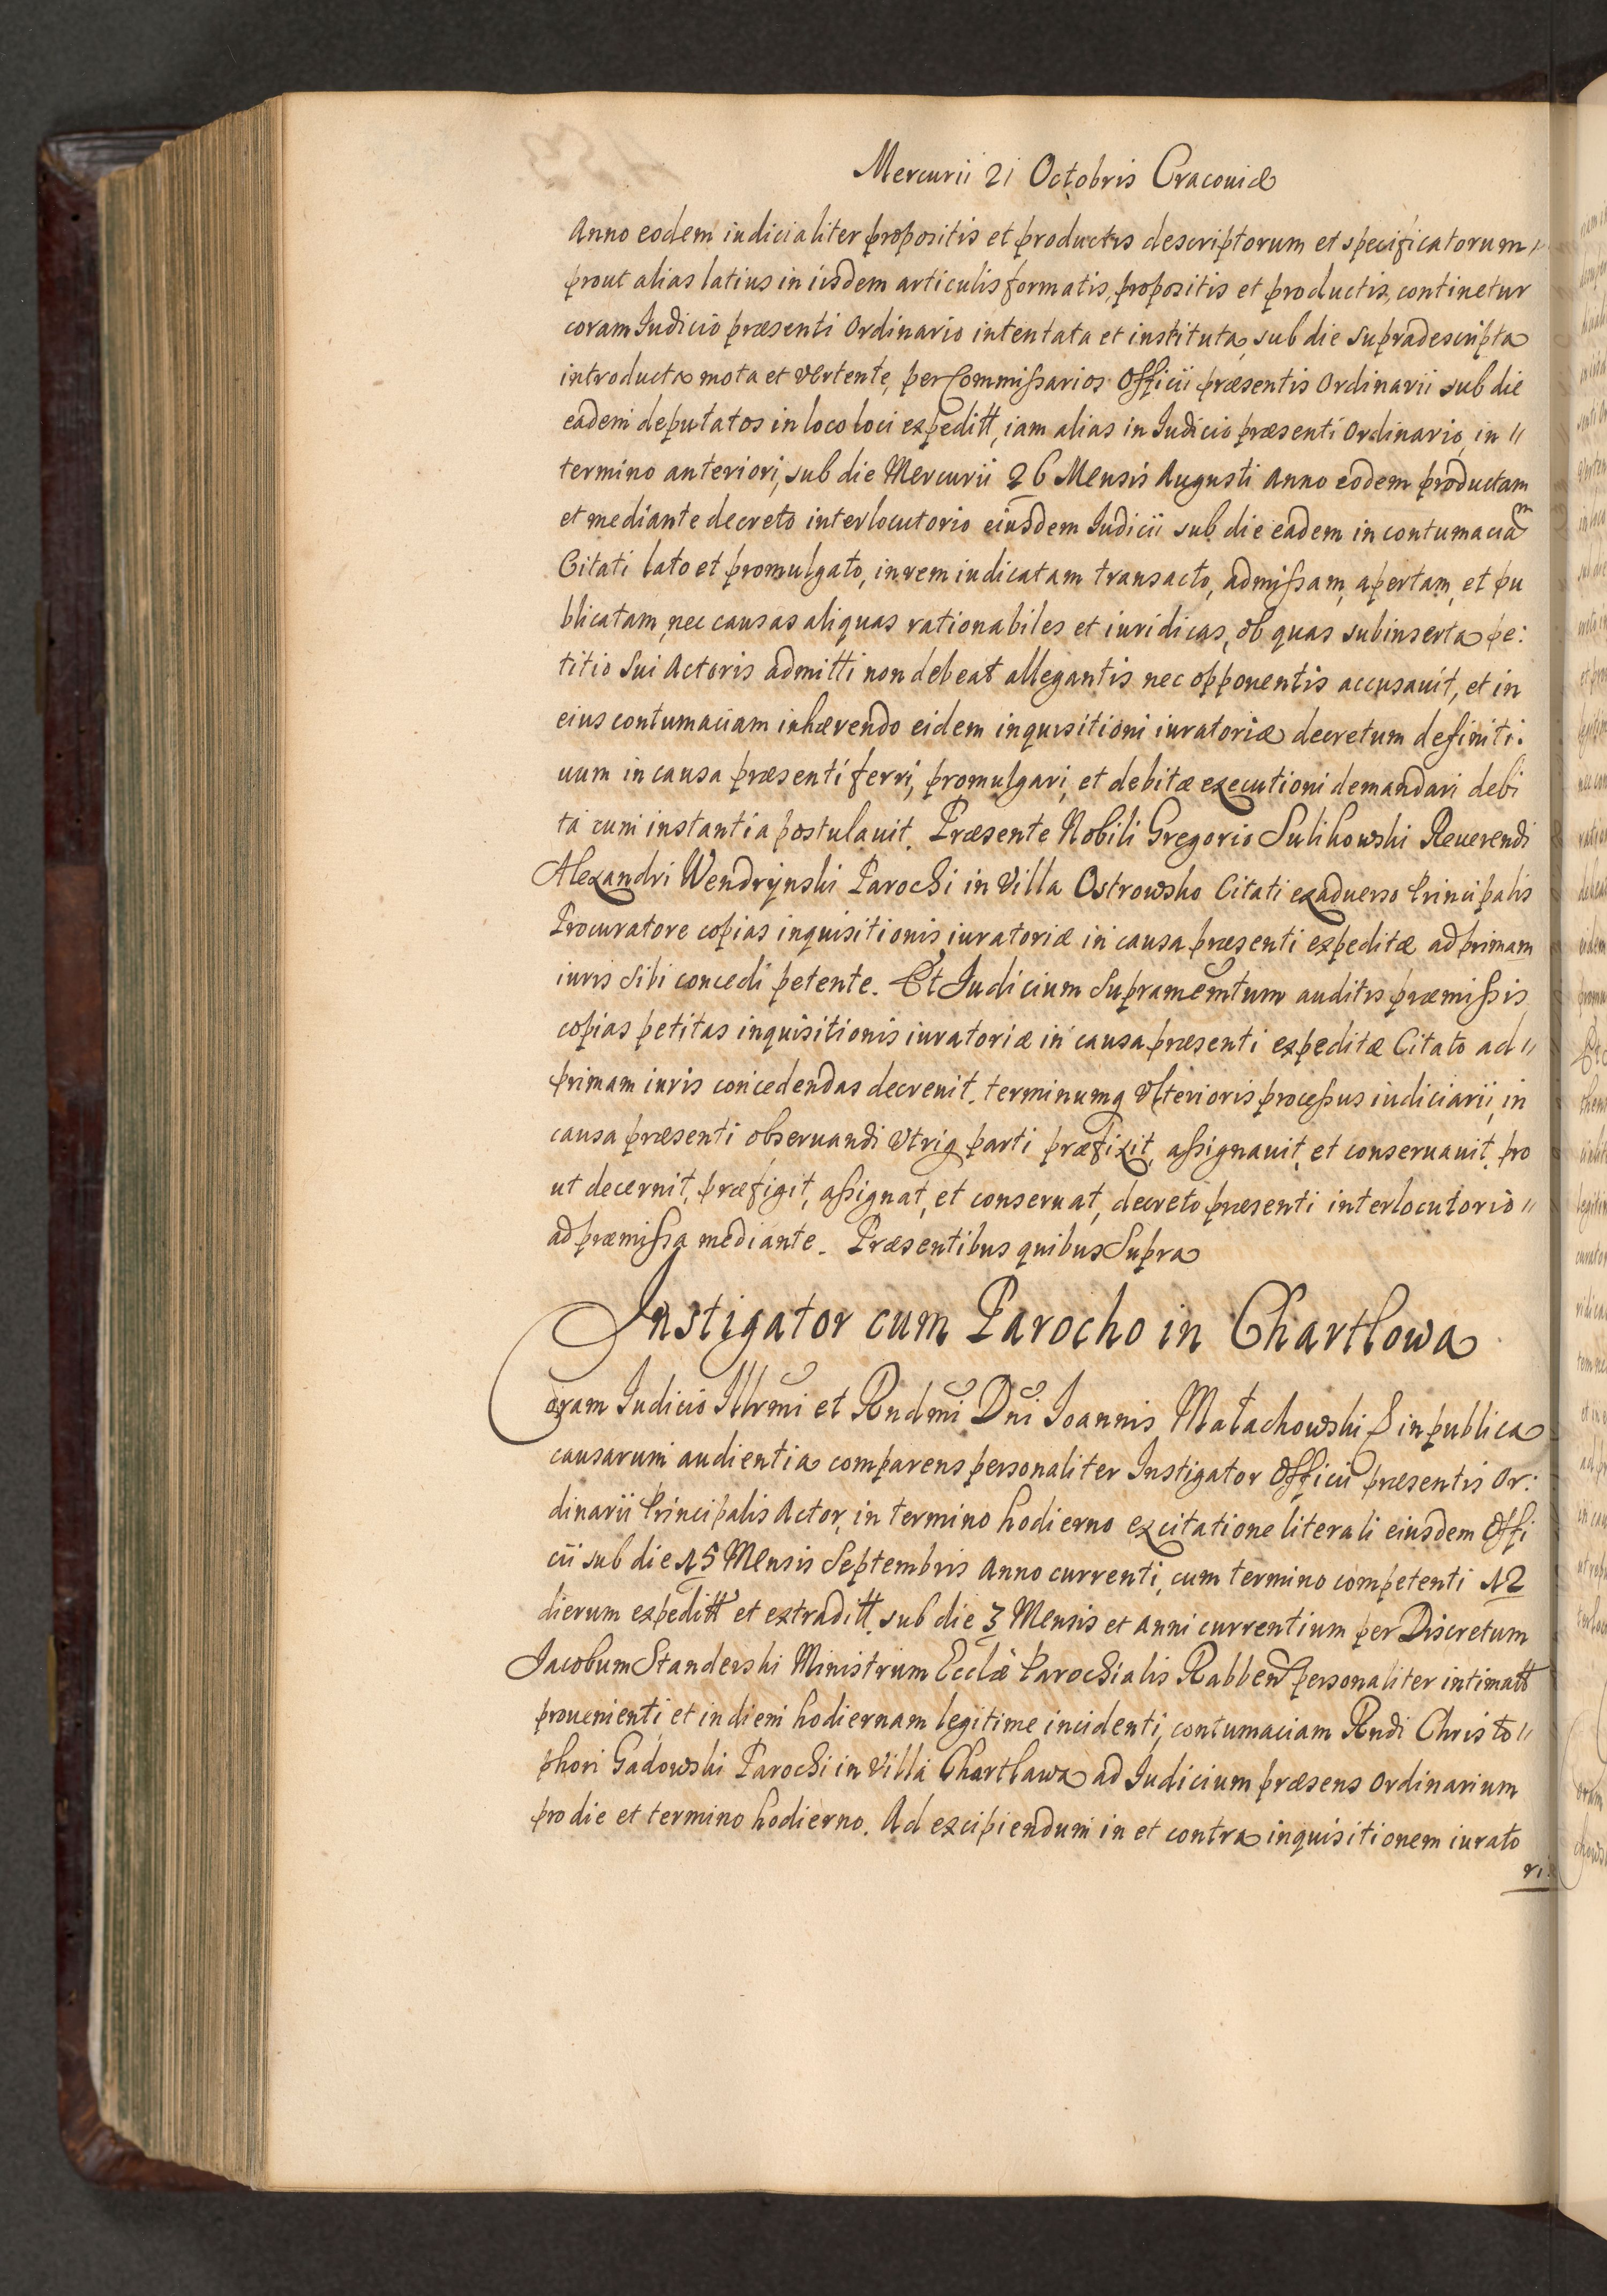 Mercurii 21 Octobris Cracouiæ
Anno eodem iudicialiter propositis et productis descriptorum et specificatorum
prout alias latius in iisdem articulis formatis, propositis et productis, continetur
coram Iudicio præsenti Ordinario intentata et instituta, sub die supradescripta
introducta mota et vertente, per Commissarios Officii præsentis Ordinarii sub die
eadem deputatos in loco loci expeditt, iam alias in Iudicio præsenti Ordinario, in
termino anteriori, sub die Mercurii 26 Mensis Augusti Anno eodem productam
et mediante decreto interlocutorio eiusdem Iudicii sub die eadem in contumaciam
Citati lato et promulgato, in rem iudicatam transacto, admissam, apertam, et pu
blicatam, nec causas aliquas rationabiles et iuridicas, ob quas subinserta pe:
titio sui Actoris admitti non debeat allegantis nec opponentis accusauit, et in
eius contumaciam inhærendo eidem inquisitioni iuratoriæ decretum definiti:
uum in causa præsenti ferri, promulgari, et debitæ executioni demandari debi
ta cum instantia postulauit. Præsente Nobili Gregorio Sulikowski Reuerendi
Alexandri Wendrynski Parochi in Villa Ostrowsko Citati exaduerso Principalis
Procuratore copias inquisitionis iuratoriæ in causa præsenti expeditæ ad primam
iuris sibi concedi petente. Et Iudicium Supramemtum auditis præmissis,
copias petitas inquisitionis iuratoriæ in causa præsenti expeditæ Citato ad
primam iuris concedendas decreuit. terminumq Vlterioris processus iudiciarii, in
causa præsenti obseruandi Vtriq parti præfixit, assignauit, et conseruauit. pro
ut decernit, præfigit, assignat, et conseruat, decreto præsenti interlocutorio
ad præmissa mediante. Præsentibus quibus Supra
Instigator cum Parocho in Chartłowa
Coram Iudicio Illrmi et Rndmi Dni Ioannis Małachowski & in publica
causarum audientia comparens personaliter Instigator Officii præsentis Or:
dinarii Principalis Actor, in termino hodierno ex citatione literali eiusdem Offi
cii sub die 15 Mensis Septembris Anno currenti, cum termino competenti 12
dierum expeditt et extraditt. sub die 3 Mensis et anni currentium per Discretum
Jacobum Standerski Ministrum Ecclæ Parochialis Rabben personaliter intimatt
prouenienti et in diem hodiernam legitime incidenti, contumaciam Rndi Christo
phori Gadowski Parochi in Villa Chartława ad Iudicium præsens Ordinarium
pro die et termino hodierno. Ad excipiendum in et contra inquisitionem iurato
ri: